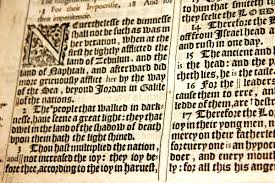 For their Hypocrisie, 18 And fo
their impenitencie.
Neuerthelesse the dimnesse
shall not be such as was in
her vexation; when at the
first he lightly afflicted the
land of Zebulun, and the
land of Naphtali, and afterward did
more grieuously afflict her by the way
of the Sea, beyond Iordan in Galile
of the nations.
2 The people that walked in dark-
nesse, haue seene a great light: they that
dwel in the land of the shadow of death
vpon them hath the light shined.
3 Thou hast multiplied the nation, and
not increased the ioy: they ioy be-
fore thee, according to the ioy in haruest,
14 Therefore the
off from Israel head
and rush in one day.
15 The ancient and
is the head: and the p
cheth lies, he is the
16 For the leaders
to erre, and
ledde of them, are
17 Therefore the Lord
ioy in their yong men
mercy on their fatherles
for euery one is an hypocr
doer, and euery mouth
ly: for all this his anger